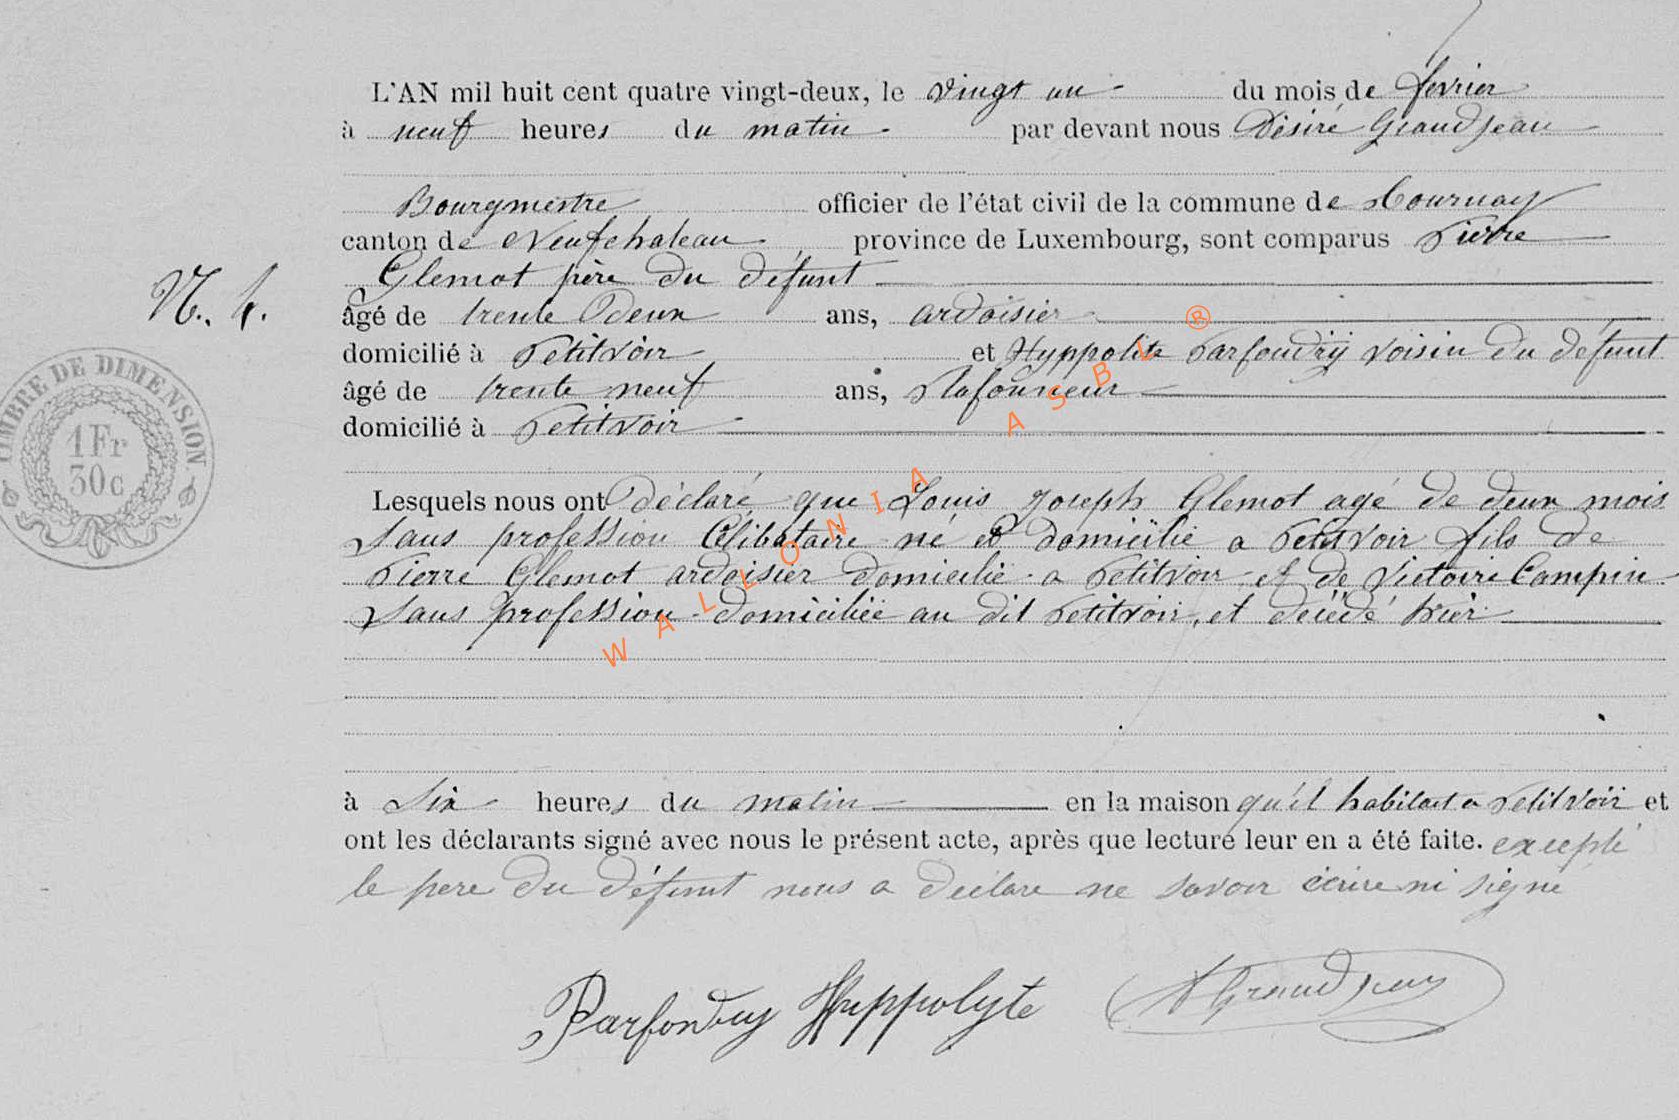 L'AN mil huit cent quatre vingt-deux, le vingt un du mois de fevrier
à neuf heures du matin par devant nous Désiré Grandjean
Bourgmestre officier de l'état civil de la commune de Tournay
canton de Neufchateau province de Luxembourg, sont comparus Pierre
Glemot père du défunt
N. 4.
âgé de trente Deux ans, ardoisier
domicilié à Petitvoir et Hyppolite Parfondrÿ voisin du défunt
âgé de trente neuf ans, Plafonneur
domicilié à Petitvoir
TIMBRE DE DIMENSION
1 Fr
30c
Lesquels nous ont Déclaré que Louis Joseph Glemot agé de deux mois
Sans profession Célibataire né et domicilié a Petitvoir fils de
Pierre Glemot ardoisier domicilié a Petitvoir et de Victoire Campin
Sans profession domiciliée au dit Petitvoir, et décédé hier
à Six heures du matin en la maison qu'il habitait a Petitvoir et
ont les déclarants signé avec nous le présent acte, après que lecture leur en a été faite. excepté
le pere du défunt nous a déclare ne savoir écrire ni signé
Parfondry Hyppolyte
D Grandjean
WALLONIA ASBL ®